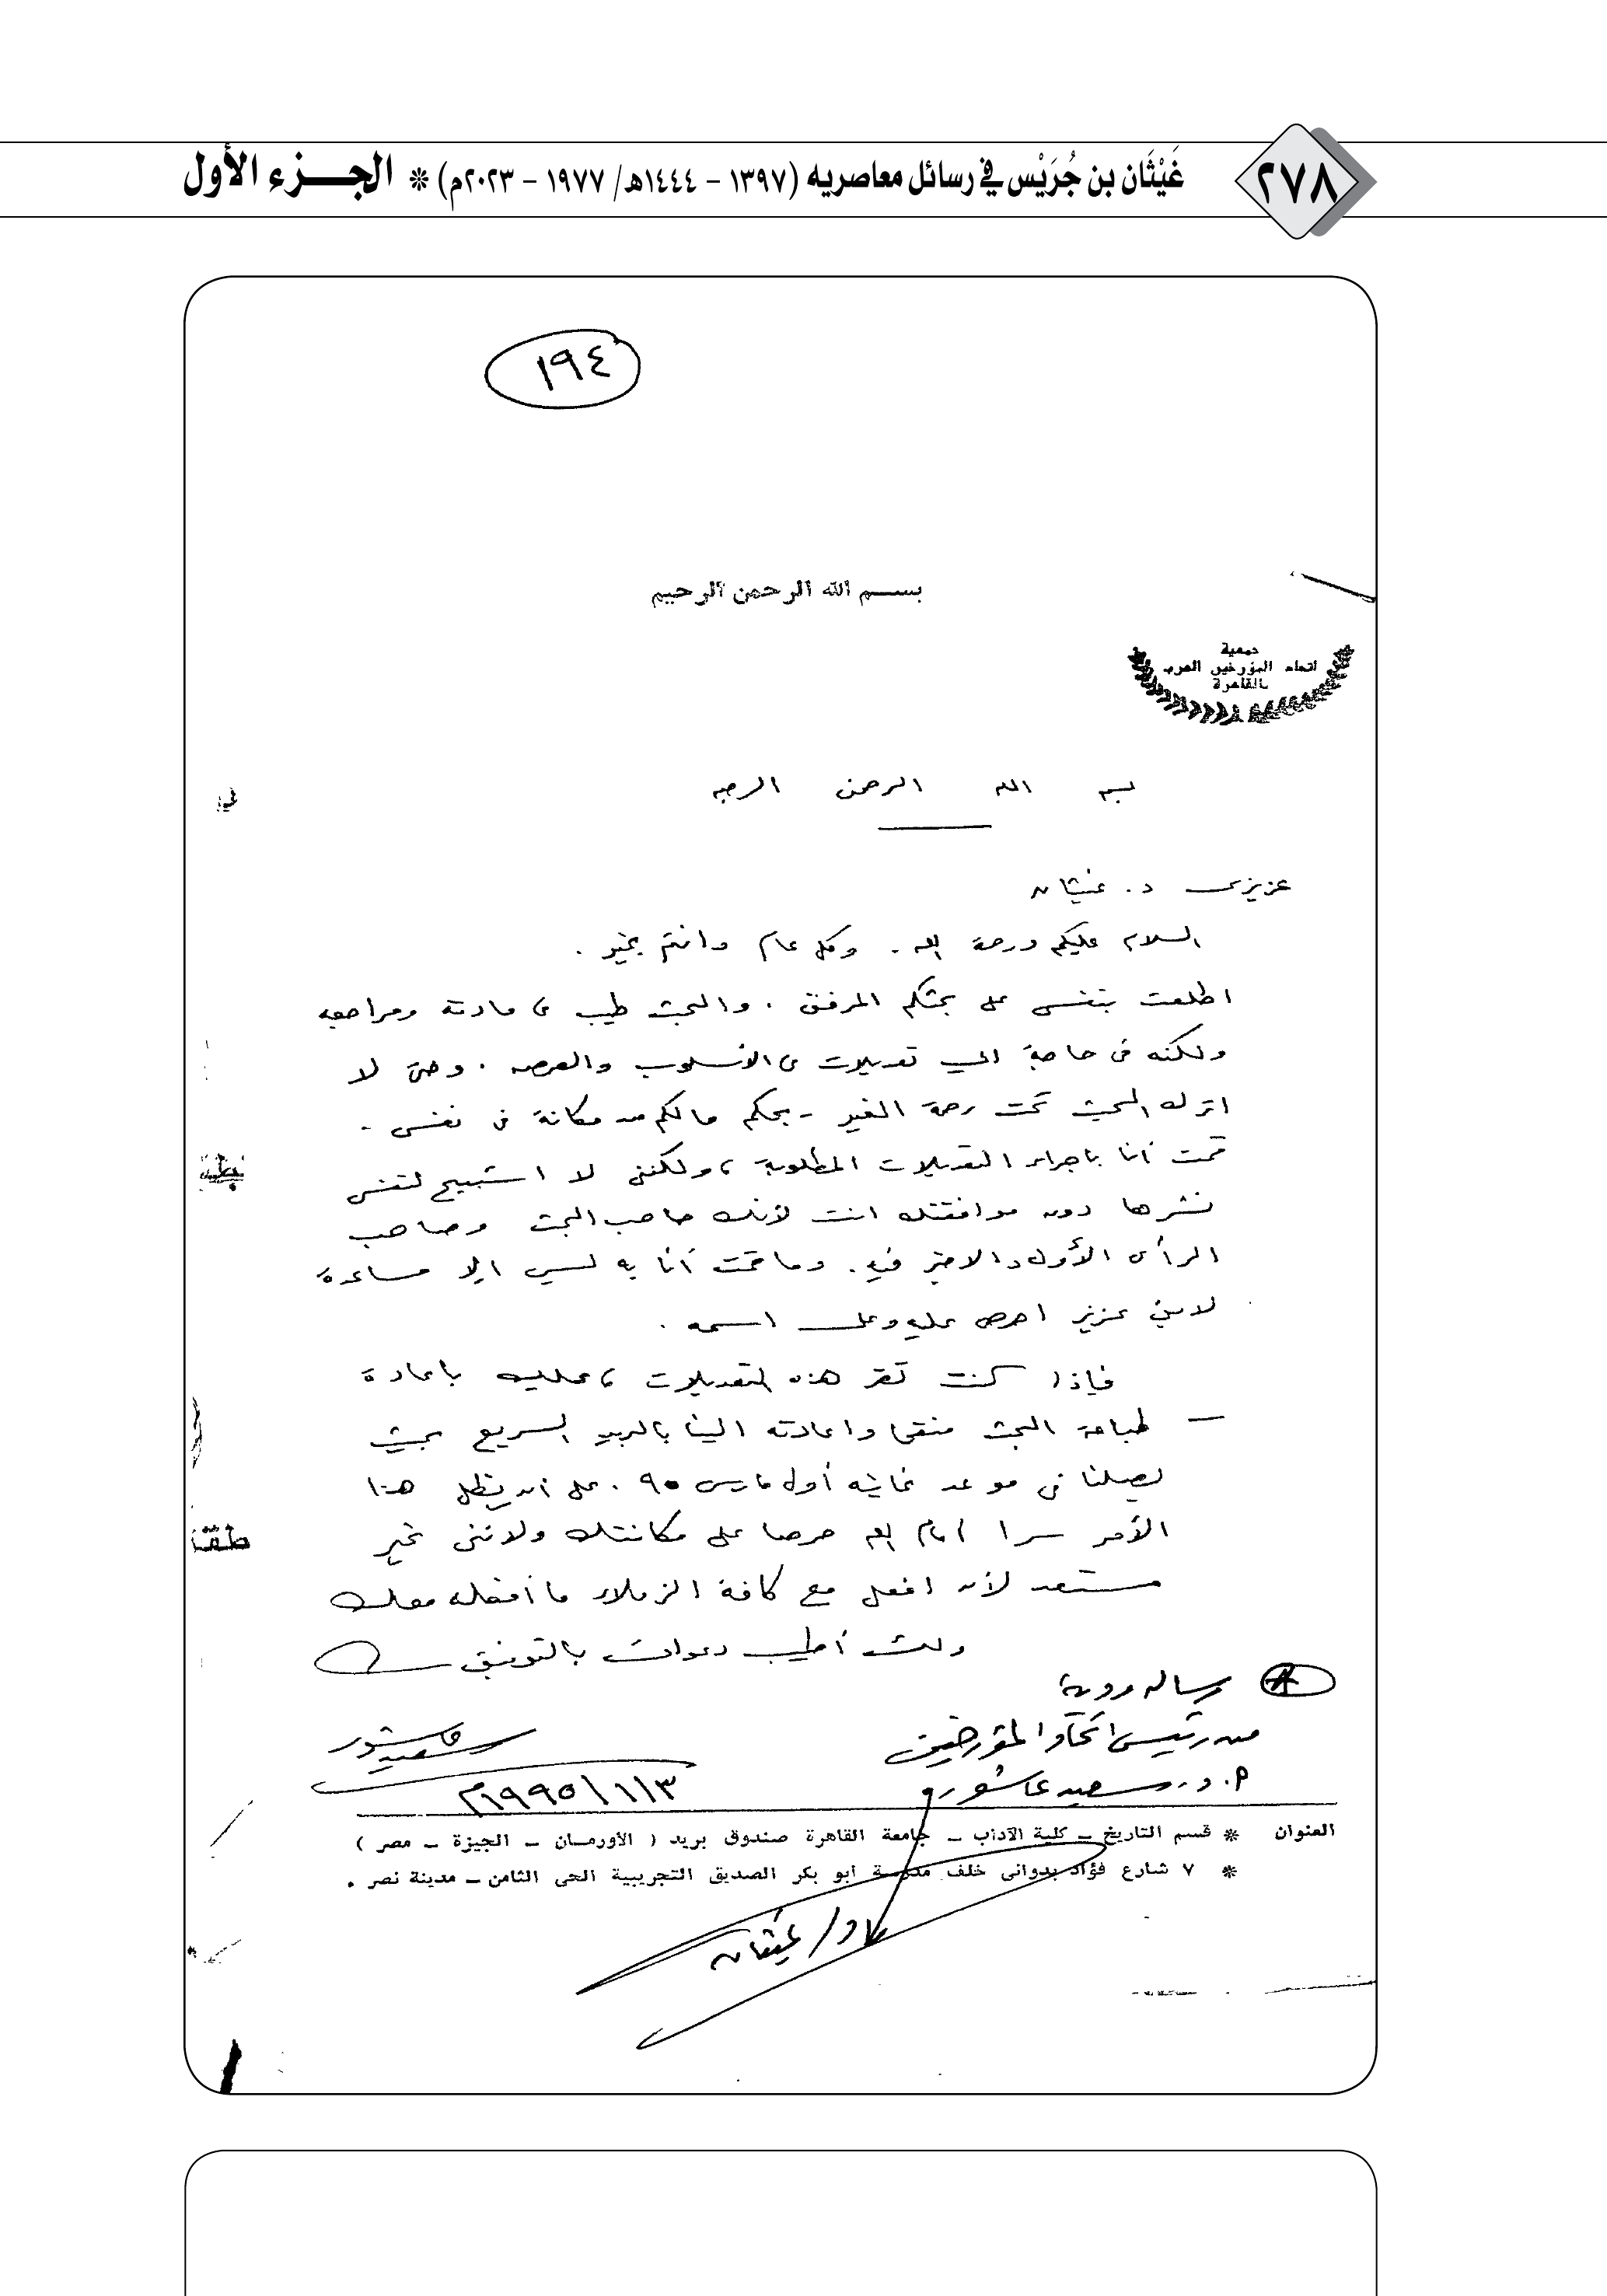 ٢٧٨
غَيْثَان بن جُرَيْس في رسائل معاصريه (١٣٩٧ - ١٤٤٤هـ/ ١٩٧٧ - ٢٠٢٣م) * الجـــزء الأول
١٩٤
بســم الله الرحمن الرحيم
جمعية
اتحاد المؤرخين العرب
بالقاهرة
بسم الله الرحمن الرحيم
عزيزى د. غيثان
السلام عليكم ورحمة الله. وكل عام وانتم بخير.
اطلعت بنفسى على بحثكم المرفق. والبحث طيب فى مادته ومراجعه
ولكنه فى حاجة الى تعديلات فى الأسلوب والعرض. وحتى لا
اترك البحث تحت رحمة الغير - بحكم مالكم من مكانة فى نفسى -
قمت أنا باجراء التعديلات المطلوبة، ولكننى لا استبيح لنفسى
نشرها دون موافقتك انت لأنك صاحب البحث وصاحب
الرأى الأول والاخير فيه. وما قمت أنا به ليس الا مساعدة
لابن عزيز احرص عليه وعلى اسمه.
فإذا كنت تقر هذه التعديلات، عليك باعادة
- طباعة البحث منقحا واعادته الينا بالبريد السريع بحيث
يصلنا فى موعد غايته أول مارس ٩٥. على ان يظل هذا
الأمر سرا أمام الله حرصا على مكانتك ولاننى غير
مستعد لأن افعل مع كافة الزملاء ما أفعله معك
ولك أطيب دعواتى بالتوفيق
رسالة
من رئيس اتحاد المؤرخين
أ. د. سعيد عاشور
سعيد عاشور
١٩٩٥/١/١٣م
العنوان * قسم التاريخ - كلية الآداب - جامعة القاهرة صندوق بريد ( الأورمان - الجيزة - مصر )
* ٧ شارع فؤاد بدوانى خلف مدرسة ابو بكر الصديق التجريبية الحى الثامن - مدينة نصر .
د/ غيثان